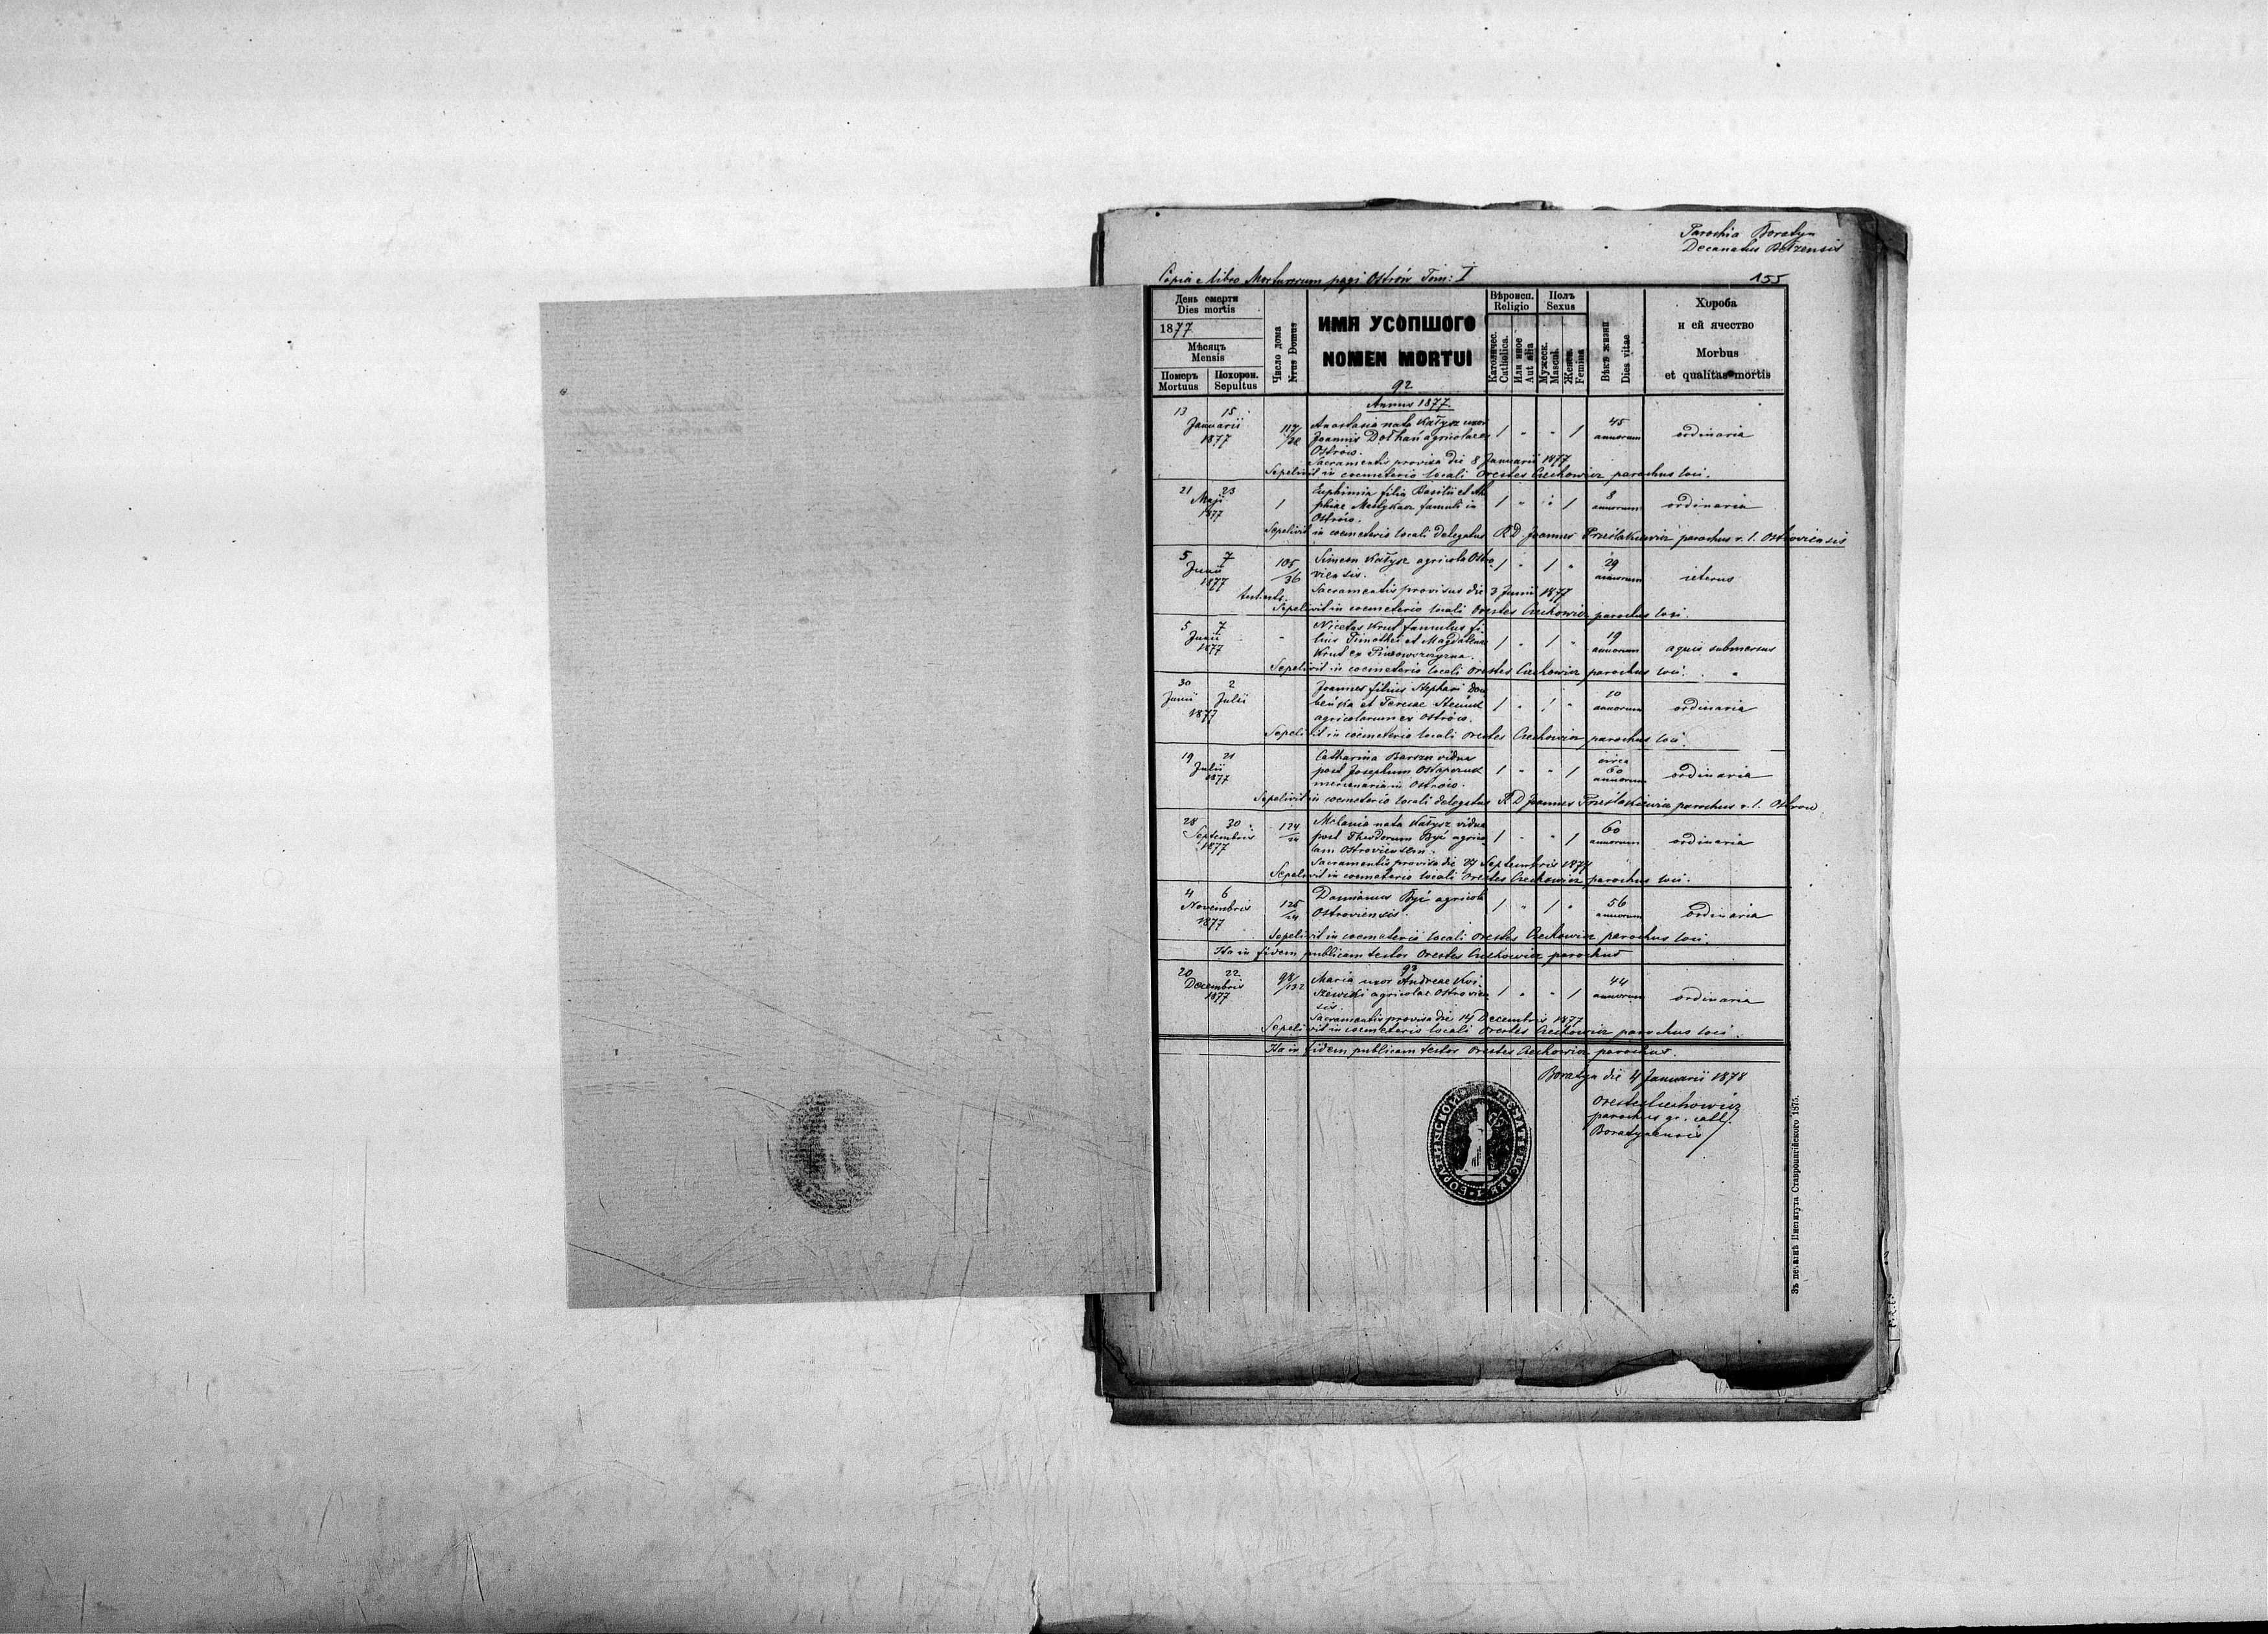 Parochia Boratyn
Decanatus Bełzensis
Copia e libro Mortuorum pagi Ostrów Tom: I
155
День смерти
Dies mortis
1877
Мѣсяцъ
Mensis
Померъ
Mortuus
Похорон.
Sepultus
Число дома
Nrus Domus
ИМЯ УСОПШОГО
NOMEN MORTUI
92
Вѣроисп.
Religio
Католичес.
Catholica.
Или иное
Aut alia
Полъ
Sexus
Мужеск.
Mascul.
Женск.
Femina
Вѣкъ жизни
Dies vitae
Хороба
и ей ячество
Morbus
et qualitas mortis
Annus 1877.
13 15
Januarii
1877
Anastasia nata Kałysz uxor
Joannis Dołhań agricolae ex
Ostrów.
/ " " /
45
annorum
ordinaria
Sacramentis provisa die 8 Januarii 1877
Sepelivit in coemeterio locali Orestes Czechowicz parochus loci.
21 23
Maji
1877
1
Euphimia filia Basilii et
famuli in
Ostrów.
/ " " /
8
annorum
ordinaria
Sepelivit in coemeterio locali delegatus R.D. Joannes parochus r. l. Ostroviensis
5 7
Junii
1877
105
/36
Simeon Kałysz agricola Ostro-
viensis.
/ " / "
29
annorum
icterus
Sacramentis provisus die 3 Junii 1877
Sepelivit in coemeterio locali Orestes Czechowicz parochus loci.
5 7
Junii
1877
"
Nicetas Krut famulus fi-
lius Timothei et Magdalenae
Krut ex
/ " / "
19
annorum
aquis submersus
Sepelivit in coemeterio locali Orestes Czechowicz parochus loci.
30 2
Junii Julii
1877
Joannes filius Stephani
et Teresae
agricolarum ex Ostrów.
/ " / "
10
annorum
ordinaria
Sepelivit in coemeterio locali Orestes Czechowicz parochus loci.
19 21
Julii
1877
Catharina vidua
post Josephum
mercenaria in Ostrów.
/ " " /
circa
60
annorum
ordinaria
Sepelivit in coemeterio locali delegatus R.D. Joannes parochus r. l. Ostrow
28 30
Septembris
1877
124
/24
Melania nata Kałysz vidua
post Theodorum Być agrico-
lam Ostroviensem.
/ " " /
60
annorum
ordinaria
Sacramentis provisa die 27 Septembris 1877
Sepelivit in coemeterio locali Orestes Czechowicz parochus loci.
4 6
Novembris
1877
125
/24
Damianus Być agricola
Ostroviensis.
/ " / "
56
annorum
ordinaria
Sepelivit in coemeterio locali Orestes Czechowicz parochus loci.
Ita in fidem publicam testor Orestes Czechowicz parochus
93
20 22
Decembris
1877
98
/132
Maria uxor Andreae
agricolae Ostrovien-
sis.
/ " " /
44
annorum
ordinaria
Sacramentis provisa die 14 Decembris 1877
Sepelivit in coemeterio locali Orestes Czechowicz parochus loci.
Ita in fidem publicam testor Orestes Czechowicz parochus.
Boratyn die 4 Januarii 1878
Orestes Czechowicz
parochus gr. cath.
Boratynensis
Зъ печатнѣ Института Ставропигійского 1875.